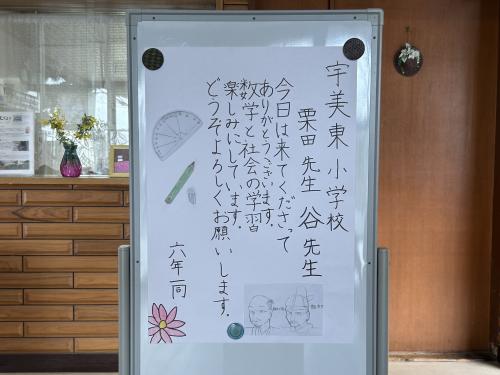 宇美東小学校
栗田先生 谷先生
今日は来てくださって
ありがとうございます。
数学と社会の学習
楽しみにしています。
どうぞよろしくお願いします。
六年一同